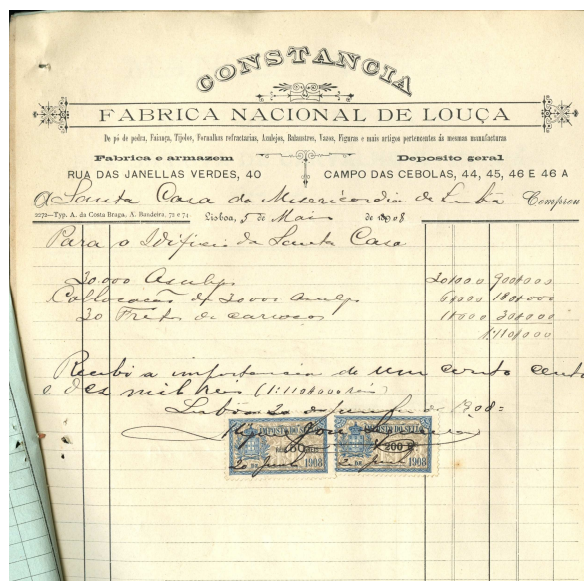 CONSTANCIA
FABRICA NACIONAL DE LOUÇA
De pó de pedra, Faiança, Tijolos, Fornalhas refractarias, Azulejos, Balaustres, Vazos, Figuras e mais artigos pertencentes ás mesmas manufacturas
Fabrica e armazem
Deposito geral
RUA DAS JANELLAS VERDES, 40
CAMPO DAS CEBOLAS, 44, 45, 46 E 46 A
A Santa Casa da Misericordia de Comprou
2272—Typ. A. da Costa Braga, A. Bandeira, 72 e 74
Lisboa, 5 de Maio de 1908
Para o Idificio da Santa Casa
30.000 30$000 900$000
Collocação de 30000 6$000 180$000
30 Fretes de carroças 1$000 30$000
1:110$000
Recebi a importancia de um conto cento
e dez mil reis (1:110$000 reis)
Lisboa 20 de Junho de 1908=
IMPOSTO DO SELLO
IMPOSTO DO SELLO
200 R
20 DE 1908
2 DE 1908